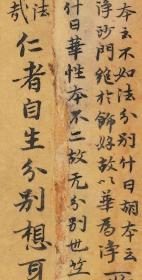 本云不如法分別什曰胡本云
淨沙門於飾好故以華為淨
什曰華性本不二故无分別也竺
法
仁者自生分別想耳
哉